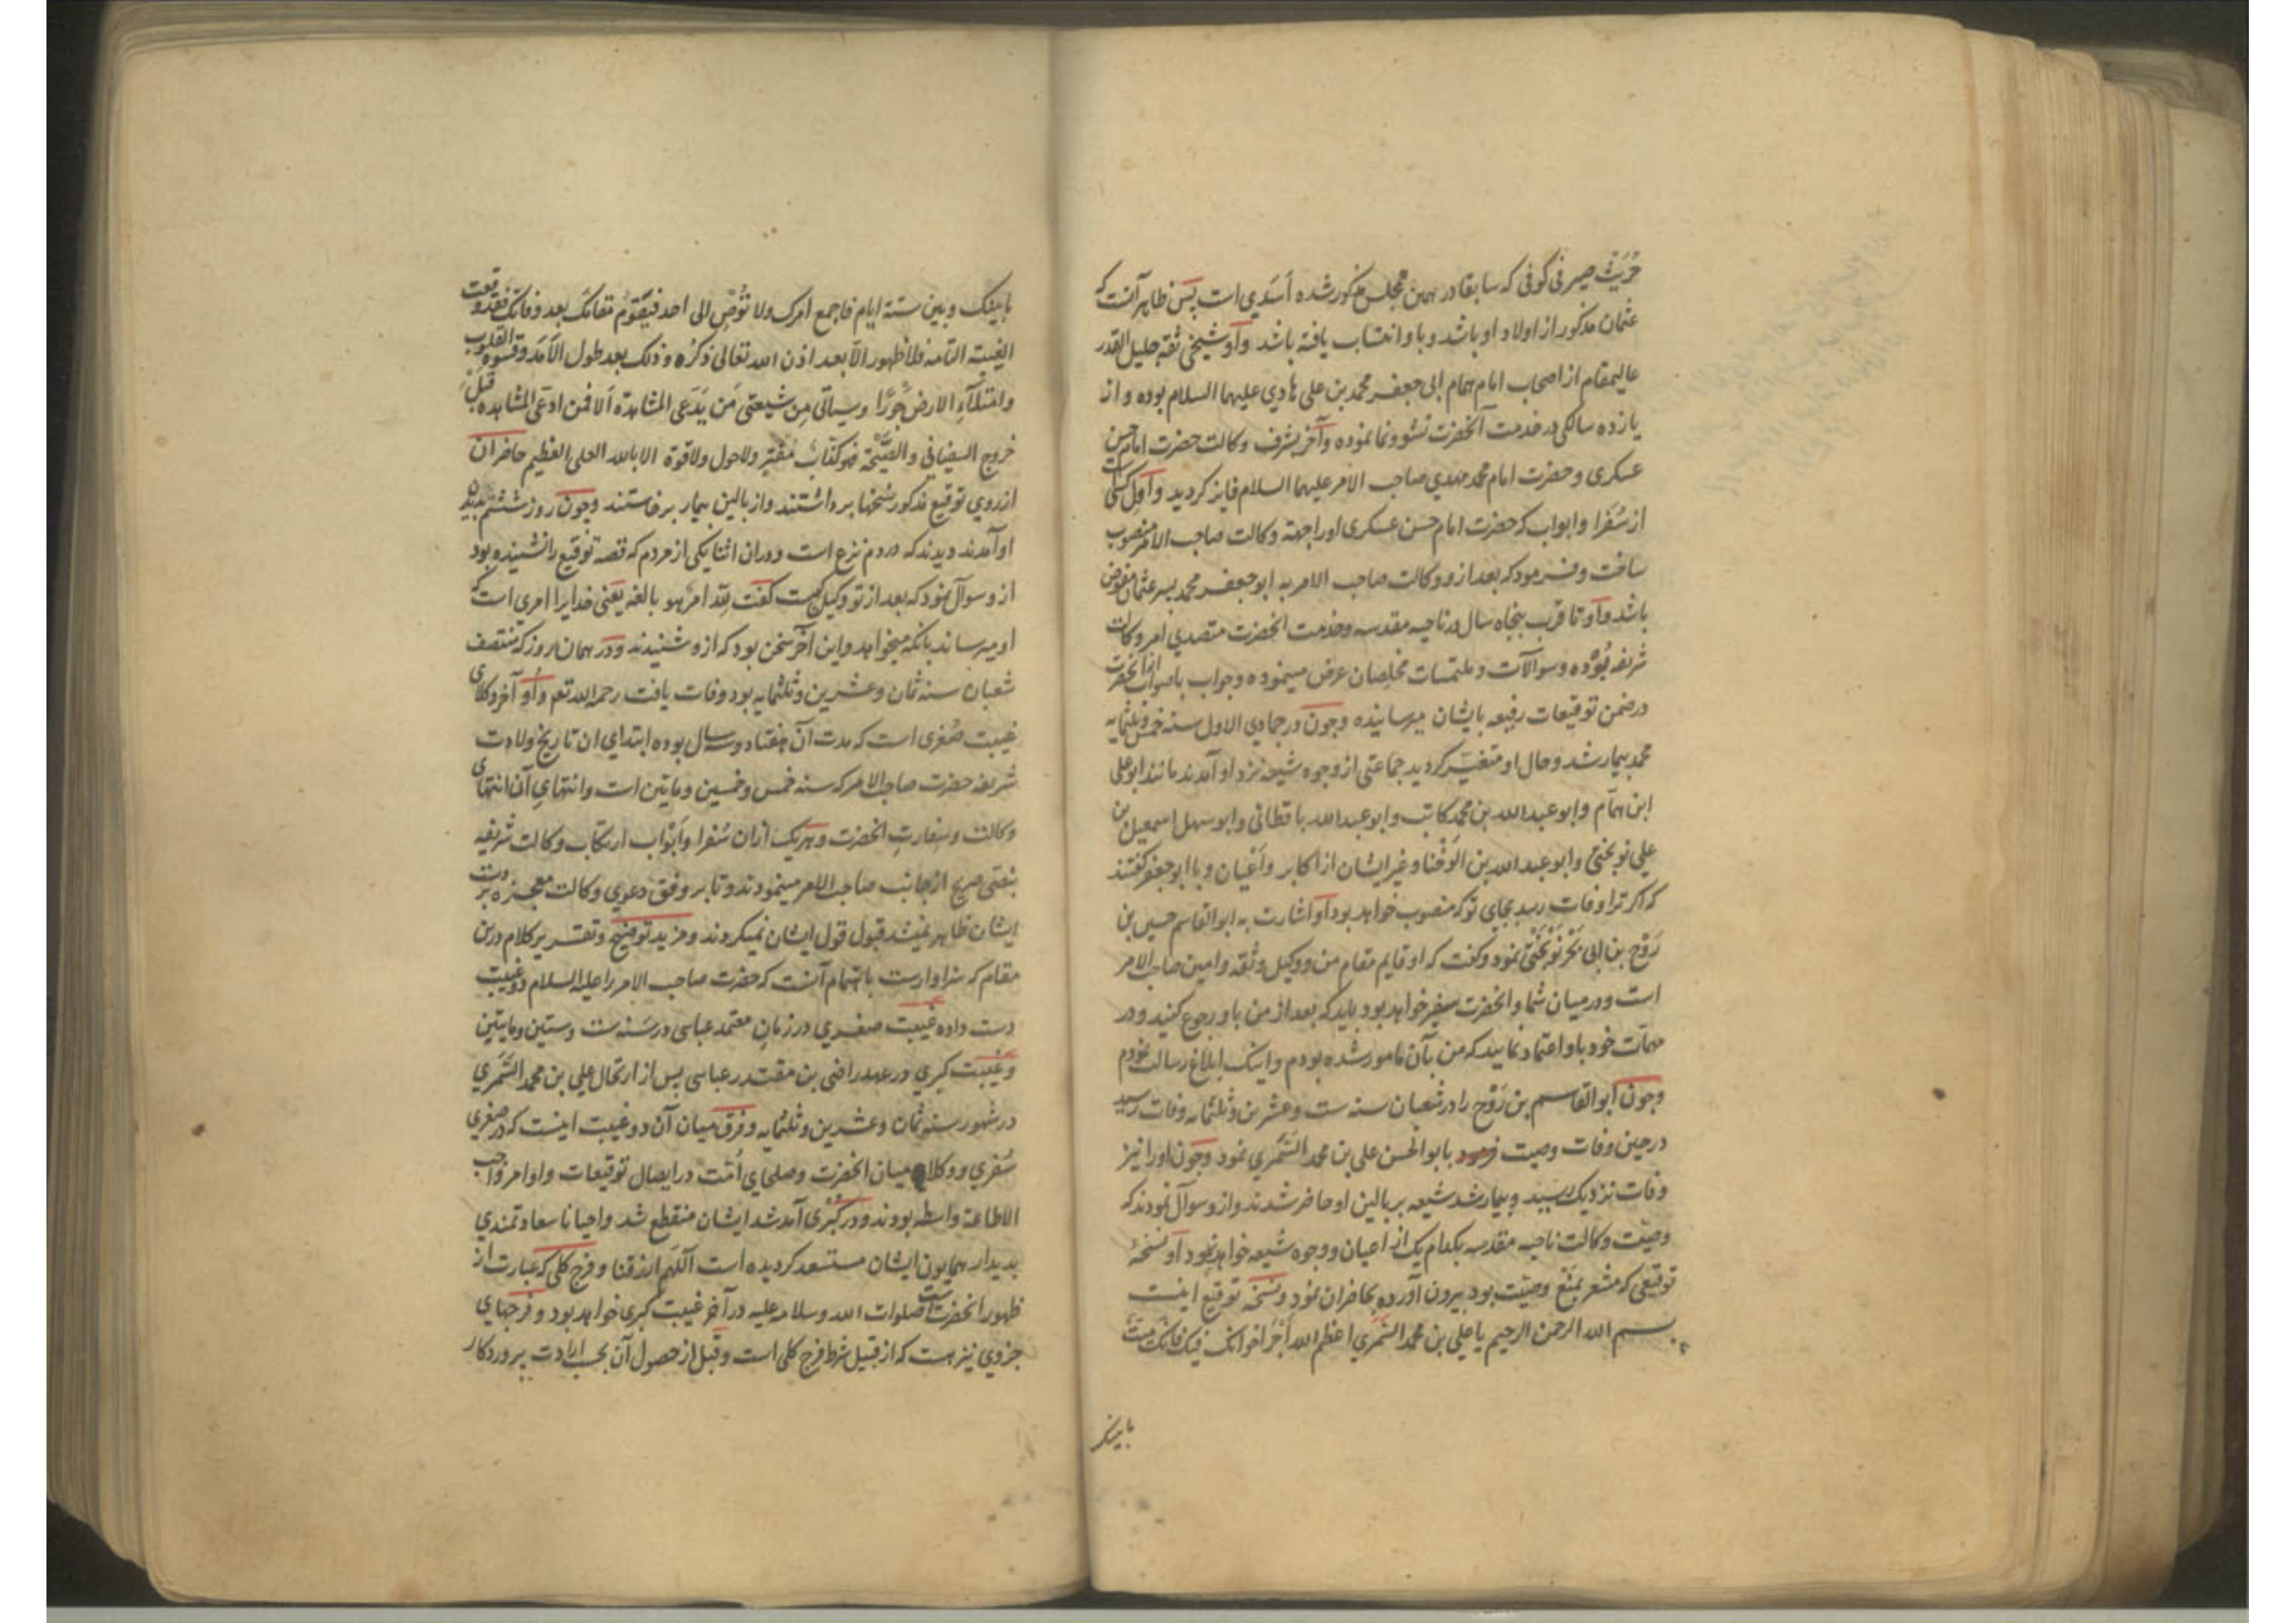 حریث صیرفی کوفی که سابقا در همین مجلس مذکور شده اسدی است پس ظاهر آنست که
عثمان مذکور از اولاد او باشد و باو انتساب یافته باشد و او شیخی ثقه جلیل القدر
عالیمقام از اصحاب امام همام ابی جعفر محمد بن علی هادی علیهما السلام بوده و از
یازده سالکی در خدمت آنحضرت نشو و نما نموده و آخر بشرف وکالت حضرت امام حسن
عسکری و حضرت امام محمد مهدی صاحب الامر علیهما السلام فایز کردید و اول کسی است
از سفرا و ابواب که حضرت امام حسن عسکری او را جهة وکالت صاحب الامر منصوب
ساخت و فرمود که بعد ازو وکالت صاحب الامر به ابو جعفر محمد پسر عثمان مفوض
باشد و او تا قرب پنجاه سال در ناحیه مقدسه و خدمت انحضرت متصدی امر وکالت
شریفه بوده و سوالات و ملتمسات مخلصان عرض مینموده و جواب باصواب انحضرت
در ضمن توقیعات رفیعه بایشان میرسانیده و چون در جمادی الاول سنه خمس و ثلثمایه
محمد بیمار شد و حال او متغیر کردید جماعتی از وجوه شیعه نزد او آمدند مانند ابو علی
ابن همام و ابو عبد الله بن محمد کاتب و ابو عبد الله باقطانی و ابو سهل اسمعیل بن
علی نوبختی و ابو عبد الله بن الوخنا و غیر ایشان از اکابر و اعیان و با ابو جعفر کفتند
که اکر ترا وفات رسد بجای تو که منصوب خواهد بود او اشارت به ابو القاسم حسین بن
روح بن ابی بحر نوبختی نمود و کفت که او قایم مقام من و وکیل و ثقه و امین صاحب الامر
است و در میان شما و انحضرت سفیر خواهد بود باید که بعد از من باو رجوع کنید و در
مهمات خود باو اعتماد نمایید که من بآن مامور شده بودم و اینک ابلاغ رسالت نمودم
و چون ابو القاسم بن روح را در شعبان سنه ست و عشرین و ثلثمایه وفات رسید
در حین وفات وصیت فرمود بابو الحسن علی بن محمد السمری نمود و چون او را نیز
وفات نزدیک رسید و بیمار شد شیعه بر بالین او حاضر شدند و ازو سوال نمودند که
وصیت وکالت ناحیه مقدسه بکدام یک از اعیان و وجوه شیعه خواهد نمود او نسخهٔ
توقیعی که مشعر بمنع وصیت بود بیرون آورده بحاضران نمود و نسخه توقیع اینست
بسم الله الرحمن الرحیم یا علی بن محمد السمری اعظم الله اجر اخوانک فیک فانک میت
ما بینک
ما بینک و بین ستة ایام فاجمع امرک ولا توص الی احد فیقوم مقامک بعد وفاتک فقد وقعت
الغیبة التامة فلا ظهور الا بعد اذن الله تعالی ذکره و ذلک بعد طول الامد و قسوة القلوب
و امتلاء الارض جورا و سیاتی من شیعتی من یدعی المشاهدة الا فمن ادعی المشاهدة قبل
خروج السفیانی و الصیحة فهو کذاب مفتر ولا حول ولا قوة الا بالله العلی العظیم حاضران
از روی توقیع مذکور نسخها برداشتند و از بالین بیمار برخاستند و چون روز ششم بدیدن
او آمدند دیدند که در دم نزع است و دران اثنا یکی از مردم که قصه توقیع را نشنیده بود
ازو سوال نمود که بعد از تو وکیل کیست کفت لله امر هو بالغه یعنی خدایرا امری است که
او میرساند بانکه میخواهد و این آخر سخن بود که ازو شنیدند و در همان روز که منتصف
شعبان سنه ثمان و عشرین و ثلثمایه بود وفات یافت رحمه الله تع و او آخر وکلای
غیبت صغری است که مدت آن هفتاد و سه سال بوده ابتدای ان تاریخ ولادت
شریفه حضرت صاحب الامر که سنه خمس و خمسین و مایتین است و انتهای آن انتهای
وکالت و سفارت انحضرت و هر یک ازان سفرا و ابواب ارتکاب وکالت شریفه
بنصی صریح از جانب صاحب الامر مینمودند و تا بر وفق دعوی وکالت معجزه بر دست
ایشان ظاهر نمیشد قبول قول ایشان نمیکردند و مزید توضیح و تقریر کلام درین
مقام که سزاوارست باتمام آنست که حضرت صاحب الامر را علیه السلام دو غیبت
دست داده غیبت صغری در زمان معتمد عباسی در سنه ست و ستین و مایتین
و غیبت کبری در عهد راضی بن مقتدر عباسی پس از ارتحال علی بن محمد السمری
در شهور سنه ثمان و عشرین و ثلثمایه و فرق میان آن دو غیبت اینست که در صغری
سفری و وکلا میان انحضرت و صلحای امت در ایصال توقیعات و اوامر واجب
الاطاعة واسطه بودند و در کبری آمد شد ایشان منقطع شد و احیانا سعادتمندی
بدیدار همایون ایشان مستسعد کردیده است اللهم ارزقنا و فرج کلی که عبارت از
ظهور انحضرت است صلوات الله و سلامه علیه در آخر غیبت کبری خواهد بود و فرجهای
جزوی نیز هست که از قبیل شرط فرج کلی است و قبل از حصول آن بحسب ارادت پروردکار